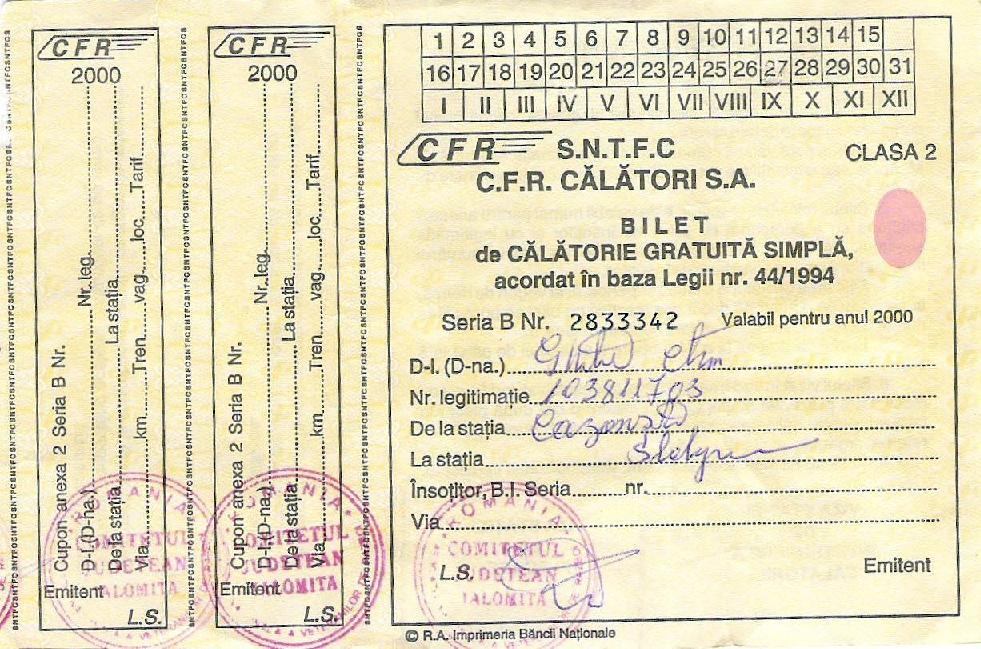 CFR
2000
Cupon anexa 2 Seria B Nr.
D-l.(D-na.) Nr. leg.
De la stația La stația
Via km Tren vag. loc. Tarif
Emitent
L.S.
CFR
2000
Cupon anexa 2 Seria B Nr.
D-l.(D-na.) Nr. leg.
De la stația La stația
Via km Tren vag. loc. Tarif
Emitent
L.S.
1 2 3 4 5 6 7 8 9 10 11 12 13 14 15
16 17 18 19 20 21 22 23 24 25 26 27 28 29 30 31
I II III IV V VI VII VIII IX X XI XII
CFR S.N.T.F.C CLASA 2
C.F.R. CĂLĂTORI S.A.
BILET
de CĂLĂTORIE GRATUITĂ SIMPLĂ,
acordat în baza Legii nr. 44/1994
Seria B Nr. 2833342 Valabil pentru anul 2000
D-l. (D-na.)
Nr. legitimație 103811703
De la stația
La stația
Însoțitor, B.I. Seria nr.
Via
L.S. Emitent
ROMANIA
COMITETUL
JUDETEAN
IALOMITA
ROMANIA
COMITETUL
JUDETEAN
IALOMITA
ROMANIA
COMITETUL
JUDETEAN
IALOMITA
© R.A. Imprimeria Băncii Naționale